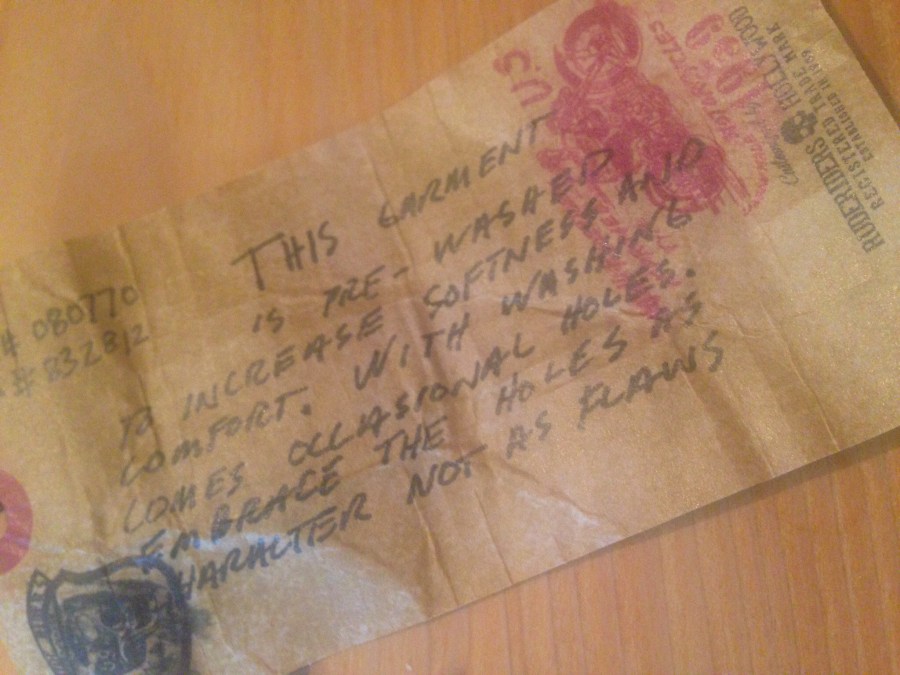 THIS GARMENT
IS PRE-WASHED
TO INCREASE SOFTNESS AND
COMFORT. WITH WASHING
COMES OCCASIONAL HOLES.
EMBRACE THE HOLES AS
CHARACTER NOT AS FLAWS
# 080770
# 832812
U.S
HOLLYWOOD
RUDE RIDERS
REGISTERED TRADE MARK
ESTABLISHED IN 1969